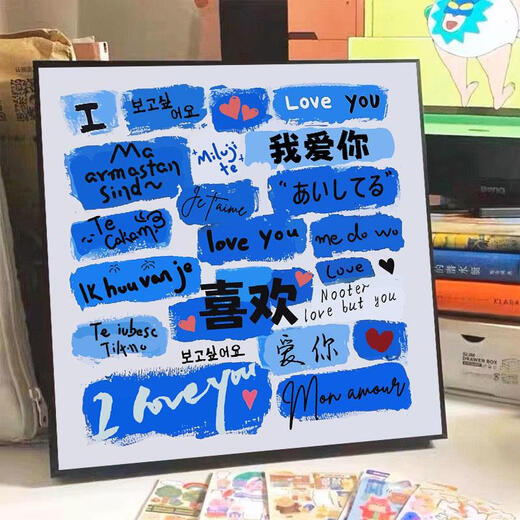 I
보고싶
어요
Love you
Ma
armastan
sind~
Miluji
te
我爱你
Je t'aime
"あいしてる"
Te
Cakam?
love you
me do wo
Ik hou van je
Love
喜欢
Nooter
love but you
Te iubesc
보고싶어요
爱你
I love you
Mon amour
BenQ
SLIM
DRAWER BOX